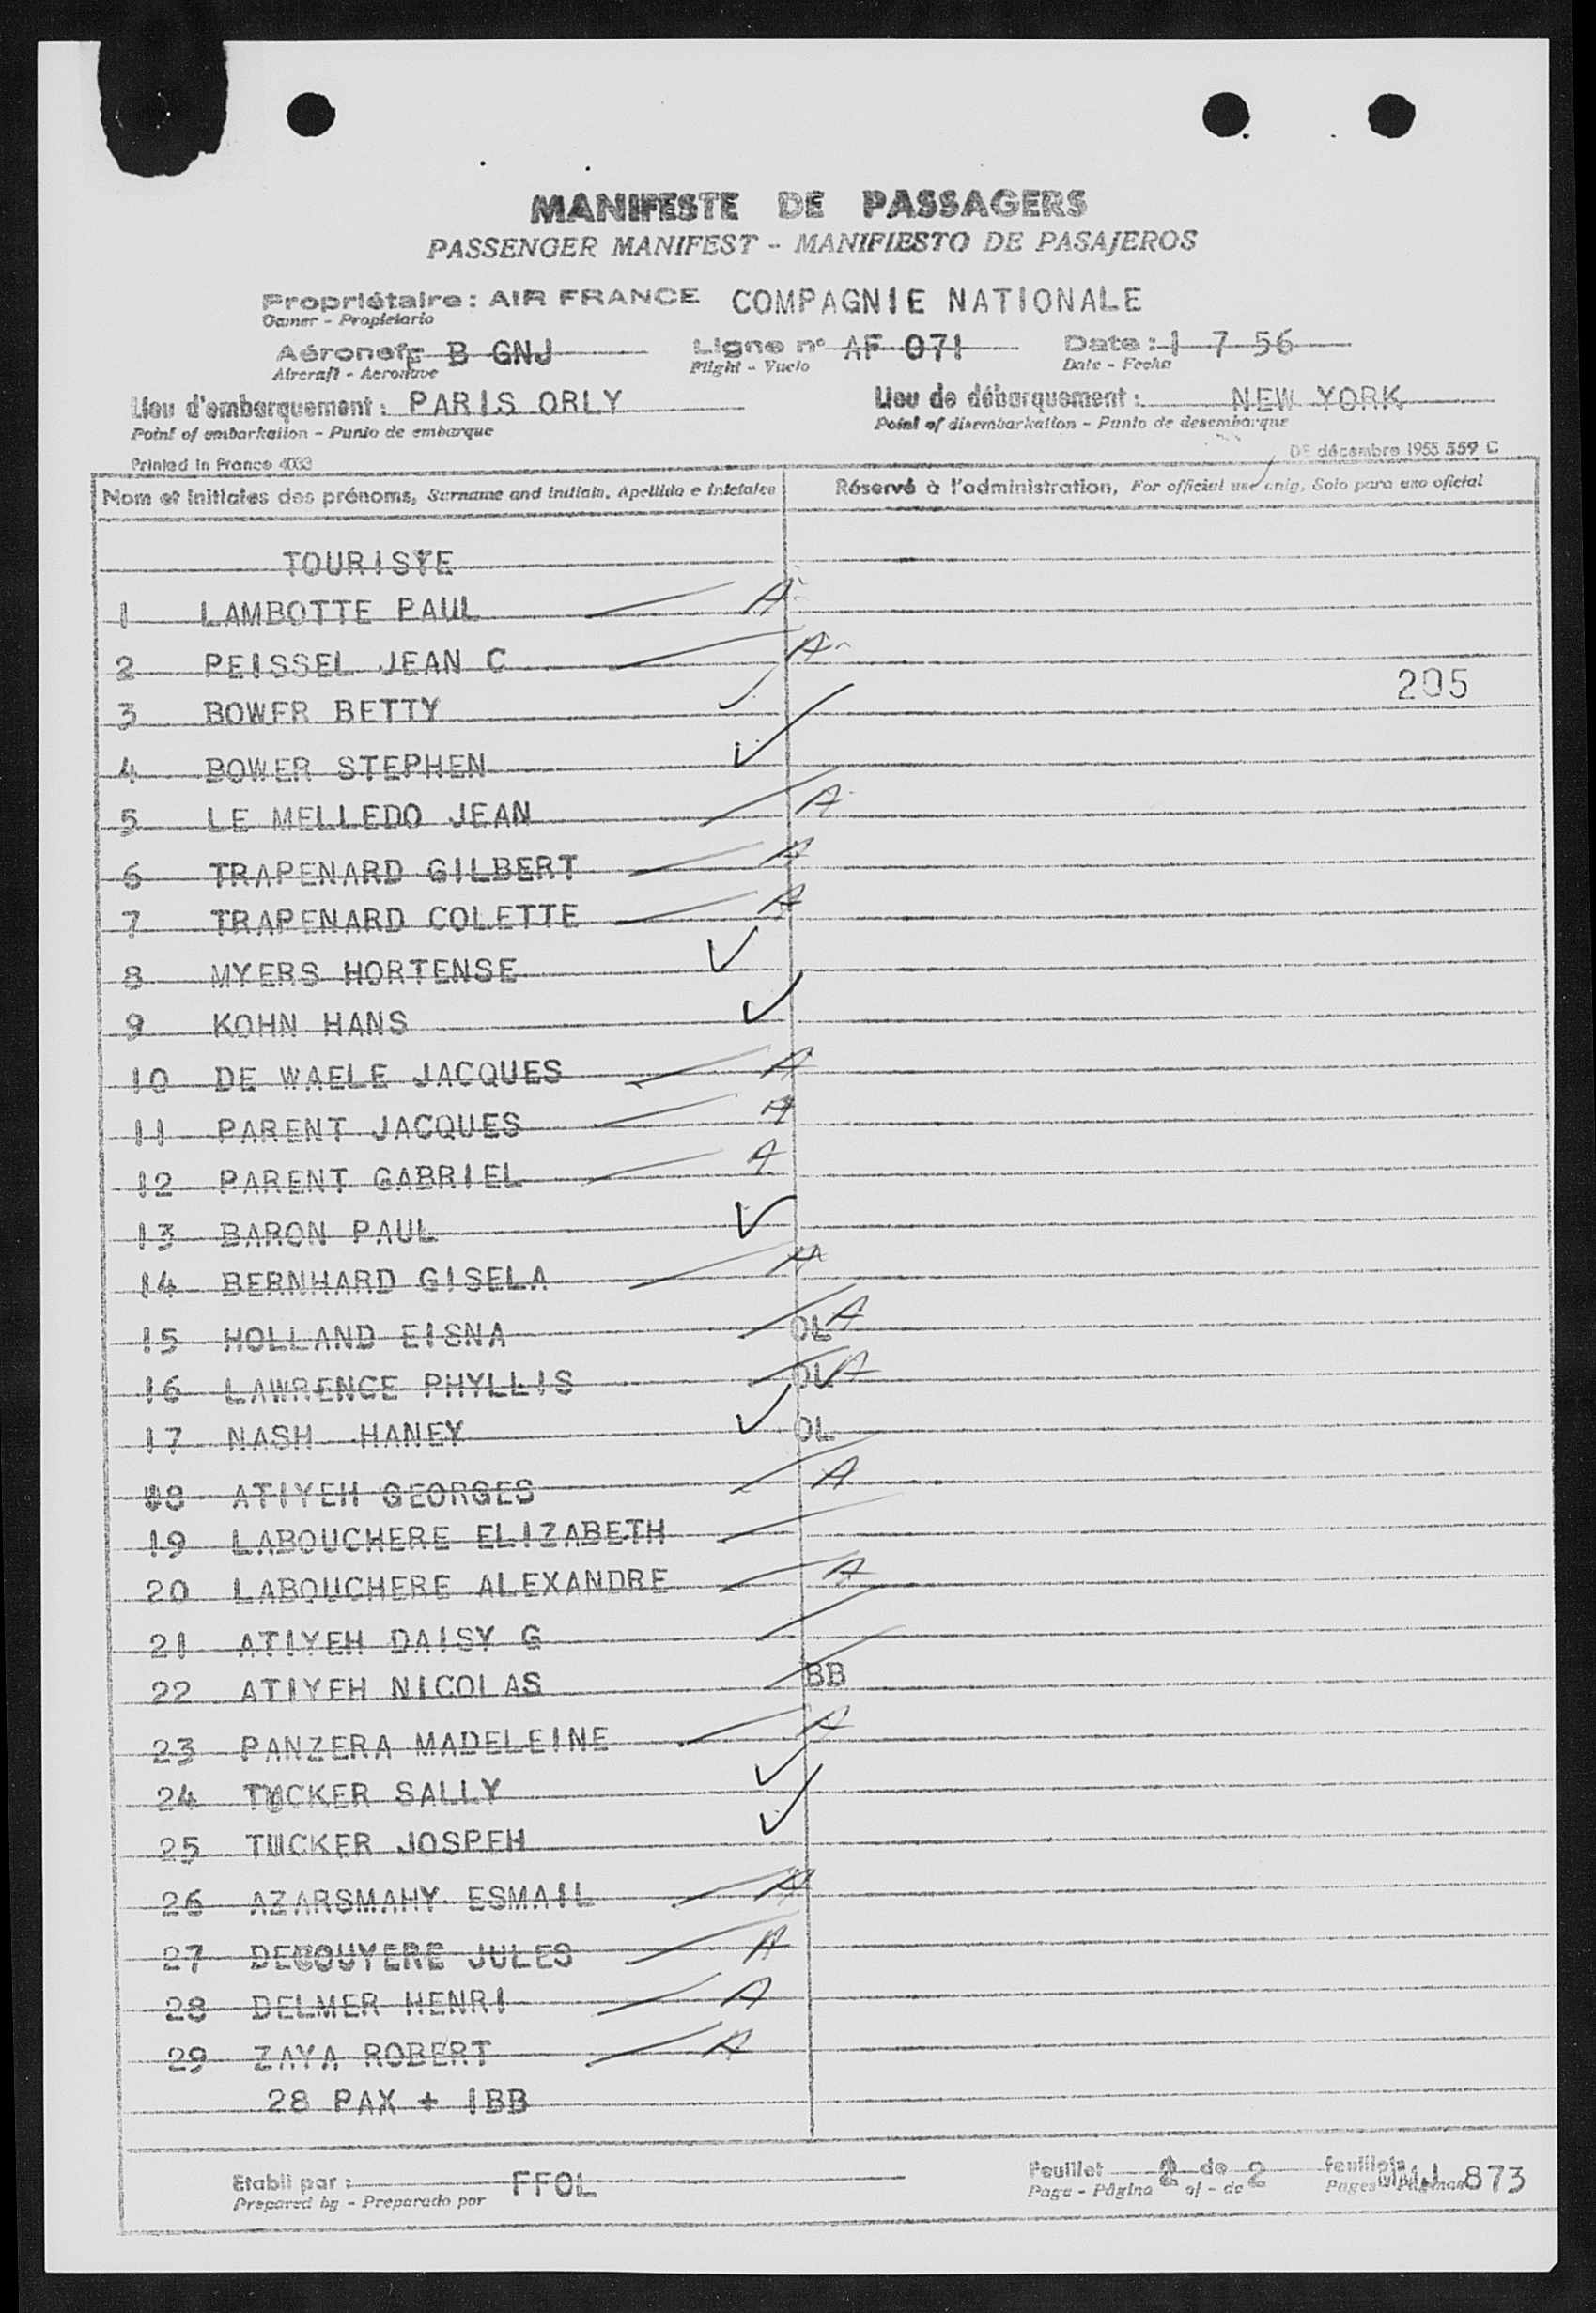 MANIFESTE DE PASSAGERS
PASSENGER MANIFEST - MANIFIESTO DE PASAJEROS
Propriétaire : AIR FRANCE COMPAGNIE NATIONALE
Owner - Propietario
Aéronef: F B GNJ Ligne n° AF 071 Date : 1 7 56
Aircraft - Aeronave Flight - Vuelo Date - Fecha
Lieu d'embarquement : PARIS ORLY Lieu de débarquement : NEW YORK
Point of embarkation - Punto de embarque Point of disembarkation - Punto de desembarque
Printed in France 4033 DE décembre 1955 559 C
Nom et initiales des prénoms, Surname and initials, Apellido e iniciales Réservé à l'administration, For official use only, Solo para uso oficial
TOURISTE
1 LAMBOTTE PAUL A
2 PEISSEL JEAN C A
205
3 BOWER BETTY ✓
4 BOWER STEPHEN ✓
5 LE MELLEDO JEAN A
6 TRAPENARD GILBERT A
7 TRAPENARD COLETTE A
8 MYERS HORTENSE ✓
9 KOHN HANS ✓
10 DE WAELE JACQUES A
11 PARENT JACQUES A
12 PARENT GABRIEL A
13 BARON PAUL ✓
14 BERNHARD GISELA A
15 HOLLAND EISNA OL A
16 LAWRENCE PHYLLIS OL A
17 NASH HANEY ✓ OL
18 ATIYEH GEORGES A
19 LABOUCHERE ELIZABETH
20 LABOUCHERE ALEXANDRE A
21 ATIYEH DAISY G
22 ATIYEH NICOLAS BB
23 PANZERA MADELEINE A
24 TUCKER SALLY ✓
25 TUCKER JOSPEH ✓
26 AZARSMAHY ESMAIL A
27 DECOUYERE JULES A
28 DELMER HENRI A
29 ZAYA ROBERT A
28 PAX + 1BB
Etabli par : FFOL Feuillet 2 de 2 feuillets
Prepared by - Preparado por Page - Página of - de Pages - Páginas 873